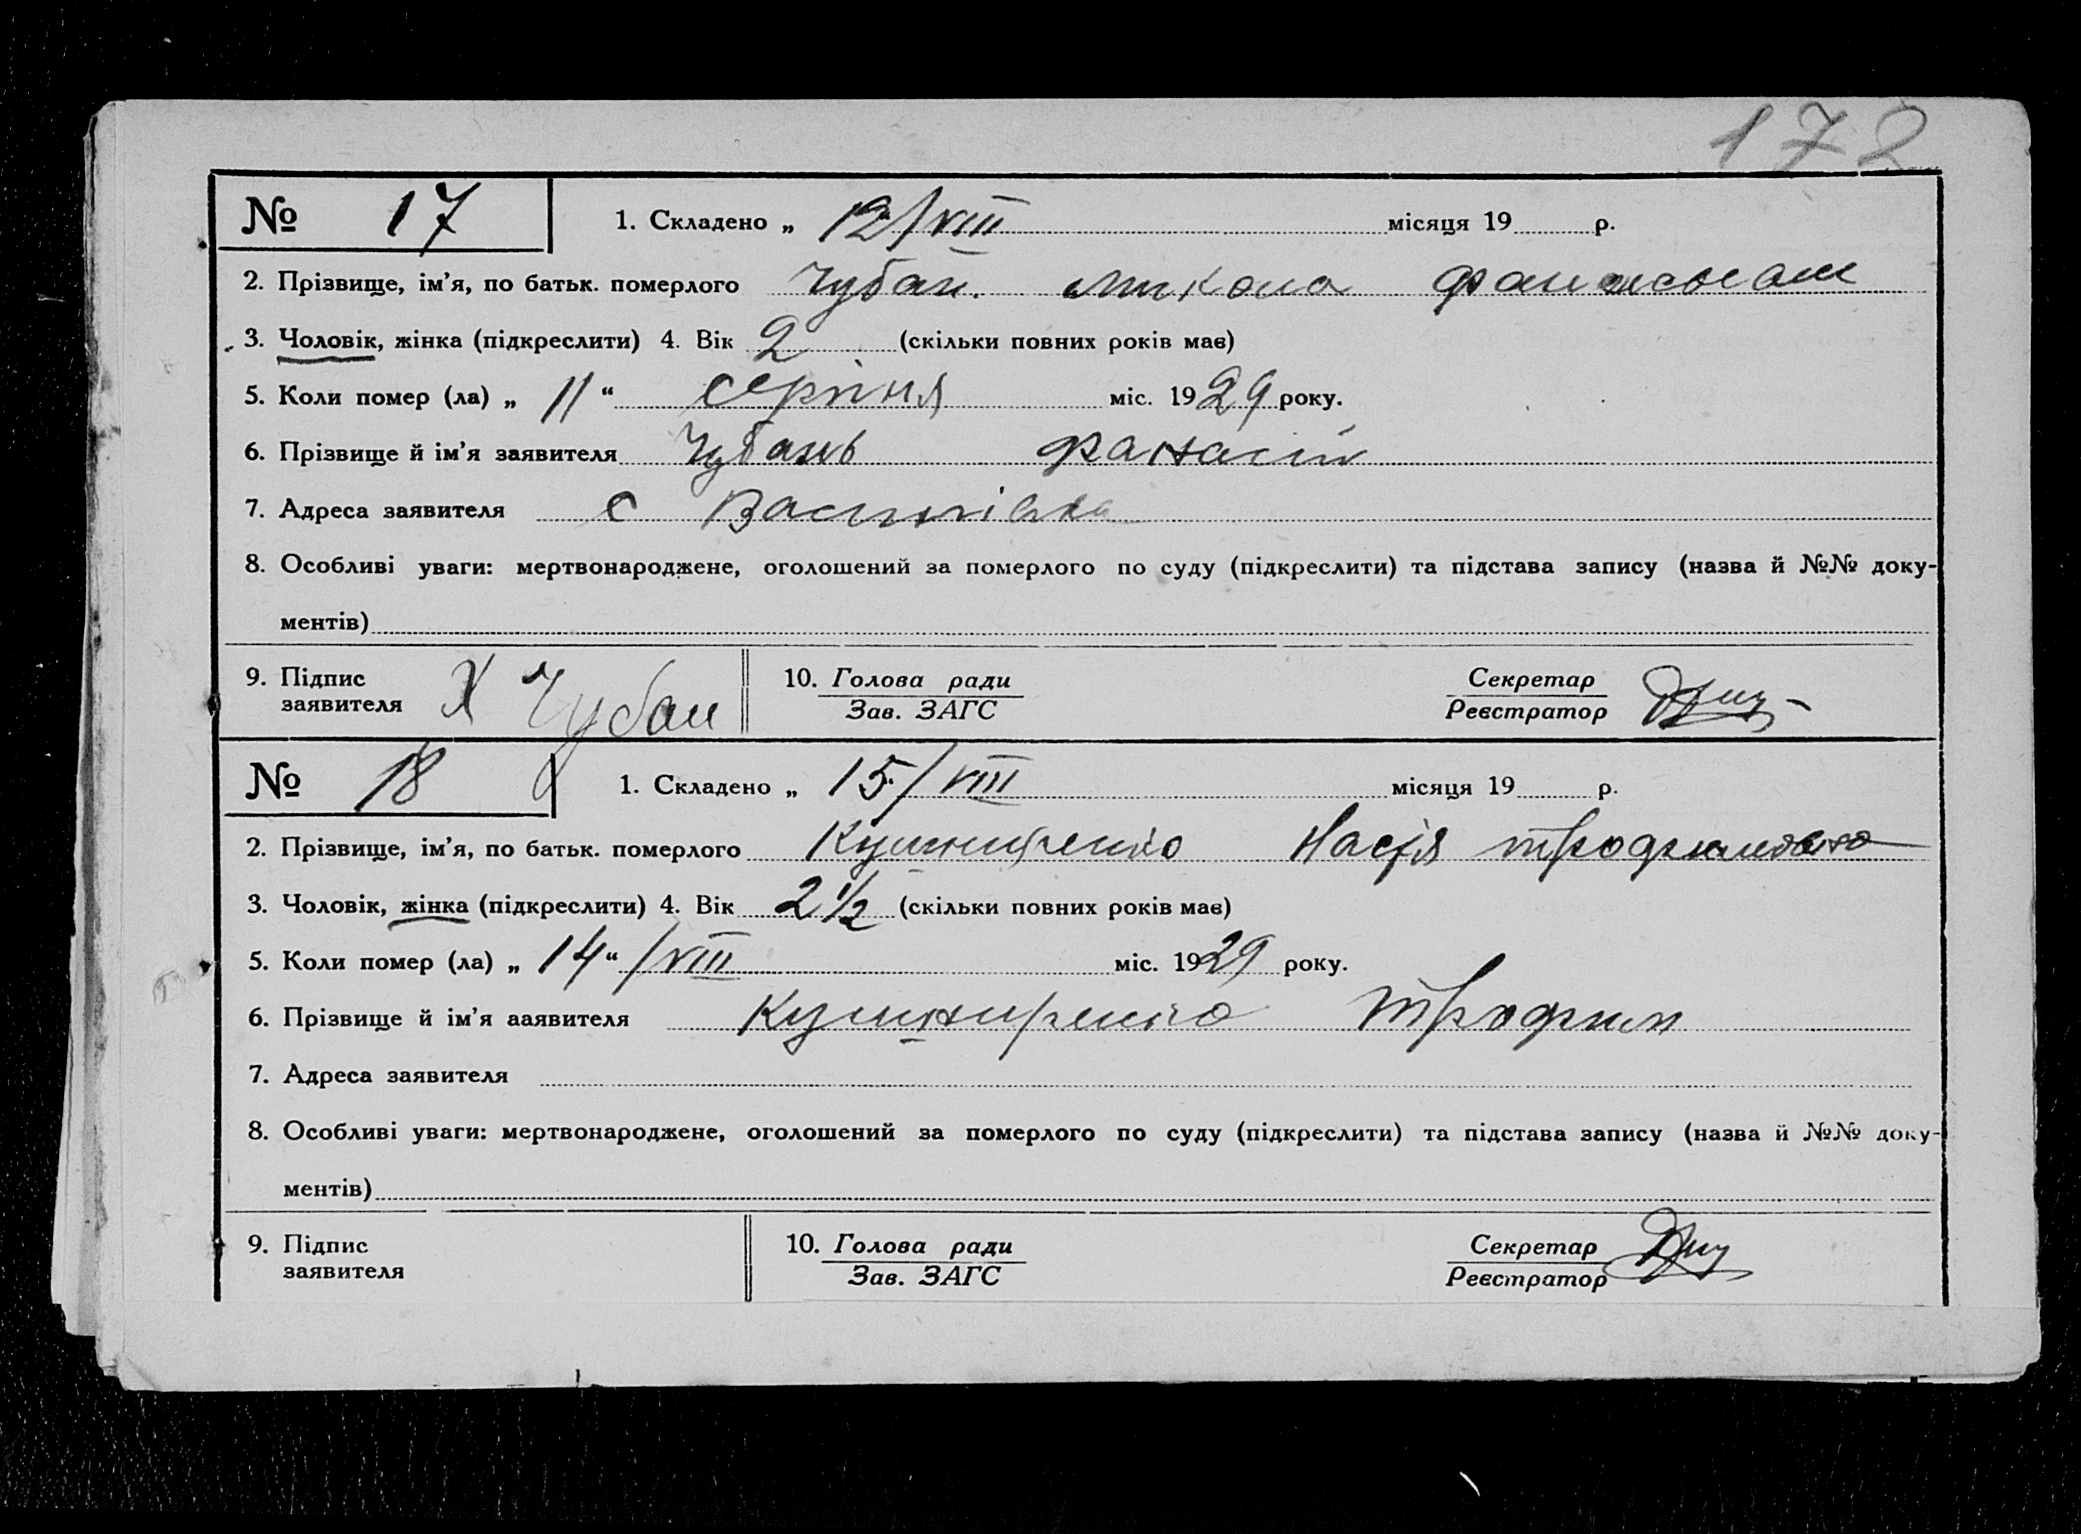 172
№ 17 1. Складено „ 12/VIII місяця 19 р.
2. Прізвище, ім’я, по батьк. померлого Чубань Микола
3. Чоловік, жінка (підкреслити) 4. Вік 2 (скільки повних років має)
5. Коли помер (ла) „ 11 “ серпня міс. 1929 року.
6. Прізвище й ім’я заявителя Чубань Фанасій
7. Адреса заявителя с Василівка
8. Особливі уваги: мертвонароджене, оголошений за померлого по суду (підкреслити) та підстава запису (назва й №№ доку-
ментів)
9. Підпис заявителя Х Чубан 10. Голова ради Секретар
Зав. ЗАГС Реєстратор
№ 18 1. Складено „ 15/VIII місяця 19 р.
2. Прізвище, ім’я, по батьк. померлого Кушниренко Настя Трофимовна
3. Чоловік, жінка (підкреслити) 4. Вік 2 1/2 (скільки повних років має)
5. Коли помер (ла) „ 14 “ /VIII міс. 1929 року.
6. Прізвище й ім’я ааявителя Кушниренко Трофим
7. Адреса заявителя
8. Особливі уваги: мертвонароджене, оголошений за померлого по суду (підкреслити) та підстава запису (назва й №№ доку-
ментів)
9. Підпис заявителя 10. Голова ради Секретар
Зав. ЗАГС Реєстратор